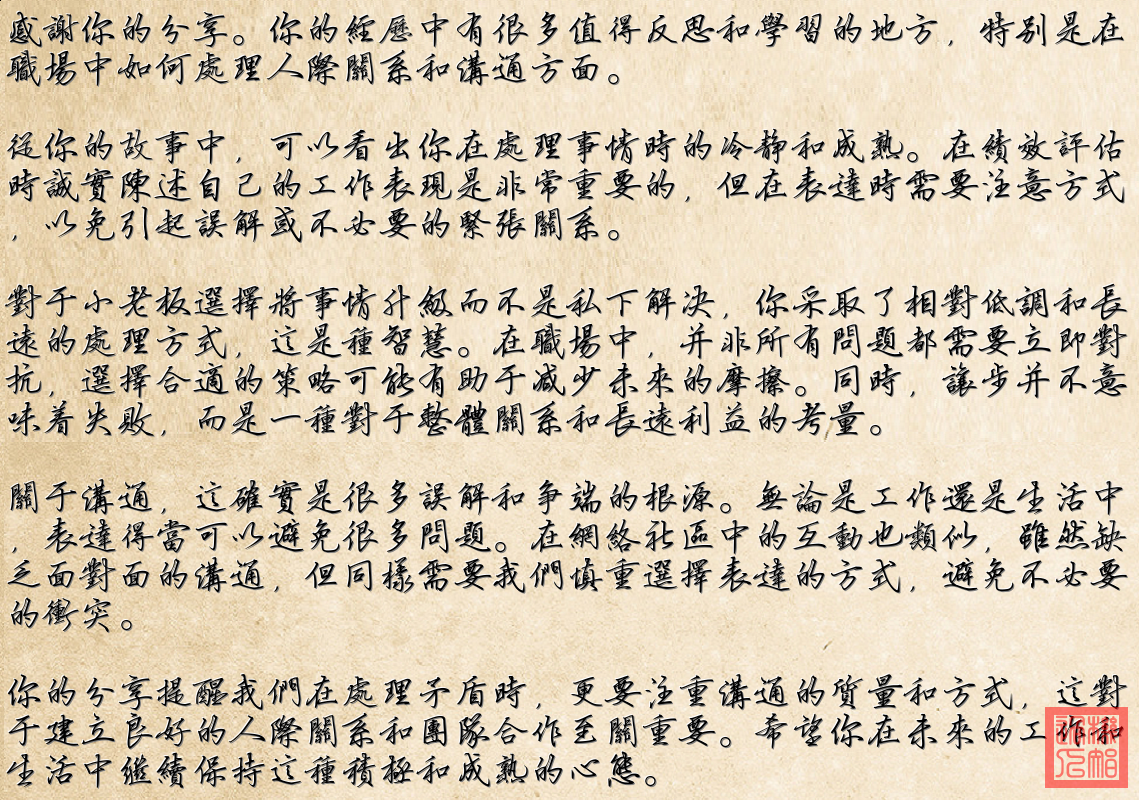 感謝你的分享。你的經歷中有很多值得反思和學習的地方，特別是在
職場中如何處理人際關系和溝通方面。
從你的故事中，可以看出你在處理事情時的冷靜和成熟。在績效評估
時誠實陳述自己的工作表現是非常重要的，但在表達時需要注意方式
，以免引起誤解或不必要的緊張關系。
對于小老板選擇將事情升級而不是私下解決，你采取了相對低調和長
遠的處理方式，這是種智慧。在職場中，并非所有問題都需要立即對
抗，選擇合適的策略可能有助于減少未來的摩擦。同時，讓步并不意
味着失敗，而是一種對于整體關系和長遠利益的考量。
關于溝通，這確實是很多誤解和爭端的根源。無論是工作還是生活中
，表達得當可以避免很多問題。在網絡社區中的互動也類似，雖然缺
乏面對面的溝通，但同樣需要我們慎重選擇表達的方式，避免不必要
的衝突。
你的分享提醒我們在處理矛盾時，更要注重溝通的質量和方式，這對
于建立良好的人際關系和團隊合作至關重要。希望你在未來的工作和
生活中繼續保持這種積極和成熟的心態。